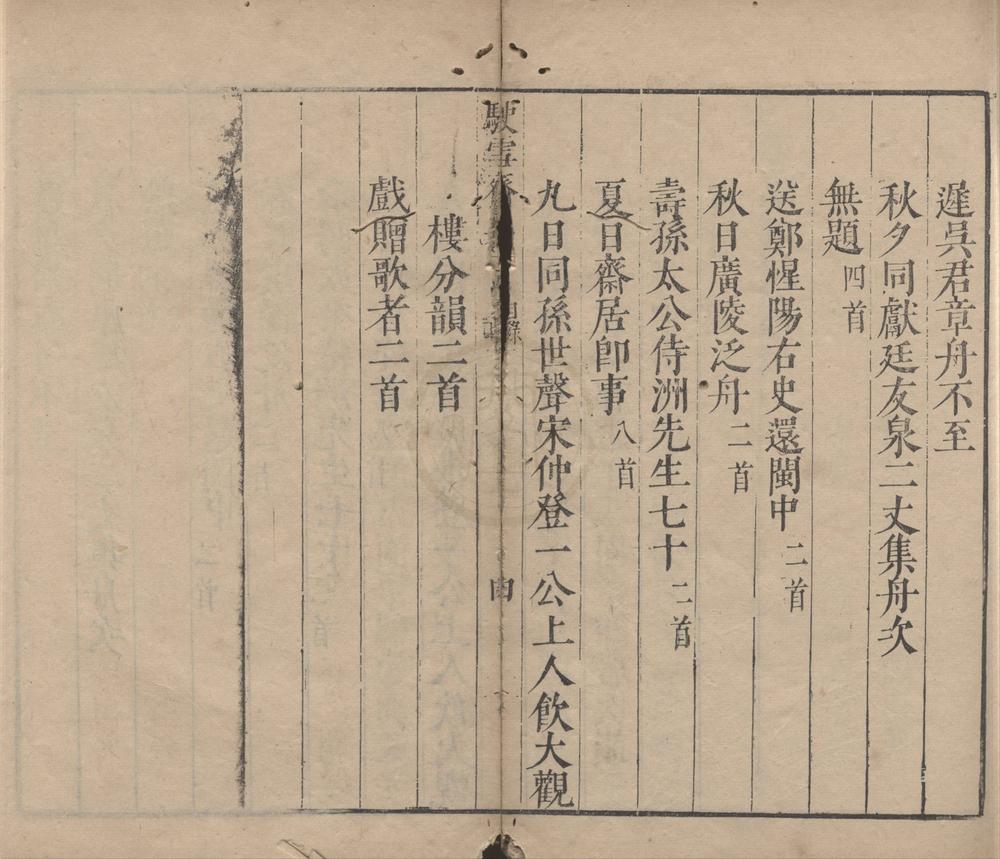 遲吳君章舟不至
秋夕同獻廷友泉二丈集舟次
無題四首
送鄭惺陽右史還閩中二首
秋日廣陵泛舟二首
壽孫太公侍洲先生七十二首
夏日齋居卽事八首
九日同孫世聲宋仲登一公上人飮大觀
駛雪齋
目錄
四
樓分韻二首
戲贈歌者二首